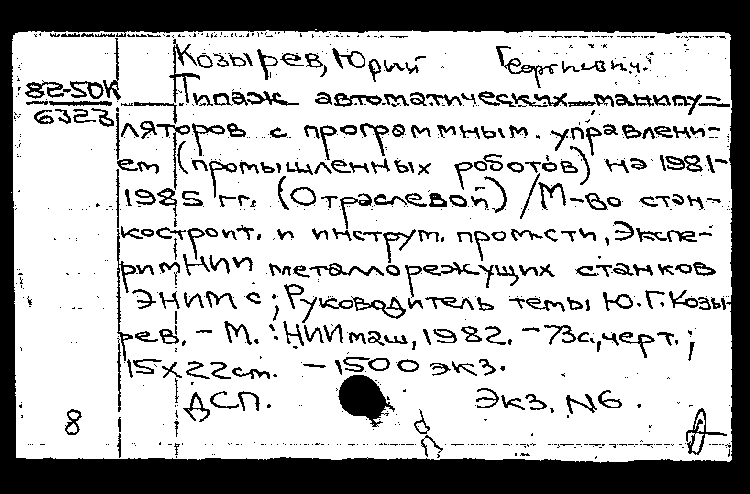 Козырев, Юрий Георгиевич.
82-50К
6323
Типаж автоматических манипу-
ляторов с программным управлени-
ем (промышленных роботов) на 1981-
1985 гг. (Отраслевой) / М-во стан-
костроит. и инструм. пром-сти, Экспе-
рим НИИ металлорежущих станков
ЭНИМС; Руководитель темы Ю.Г. Козы-
рев. - М.: НИИмаш, 1982. - 73с, черт.;
15х22см. - 1500 экз.
ДСП. Экз. N6.
8